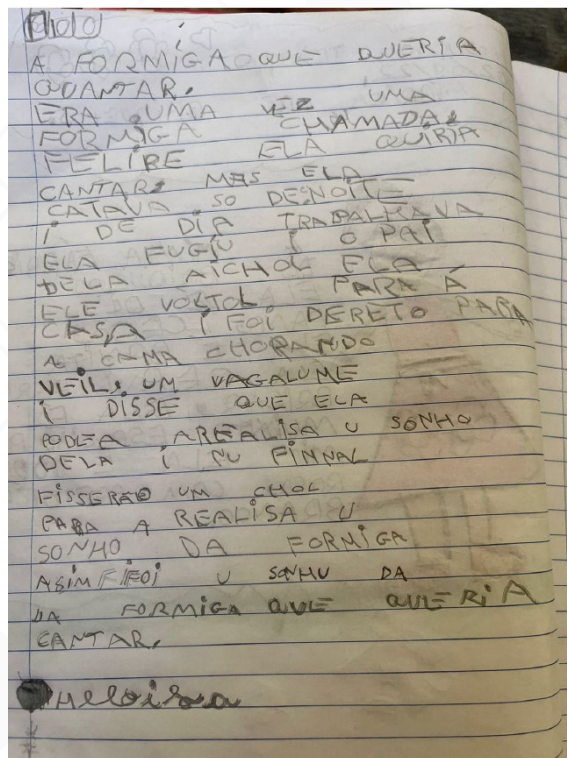 A FORMIGA QUE QUERIA
CANTAR.
ERA UMA VEZ UMA
FORMIGA CHAMADA
FELIBE ELA QUIRIA
CANTAR. MAS ELA
CATAVA SO DENOITE
I DE DIA TRABALHAVA
ELA FUGIU I O PAI
DELA AICHOL ELA
ELE VOLTOL PARA A
CASA I FOI DERETO PARA
A CAMA CHORANDO
VEIL. UM VAGALUME
I DISSE QUE ELA
PODEA AREALISA U SONHO
DELA I NU FINNAL
FISSERAO UM CHOL
PARA A REALISA U
SONHO DA FORMIGA
ASIM FOI U SONHU DA
DA FORMIGA QUE QUERIA
CANTAR.
Heloisa